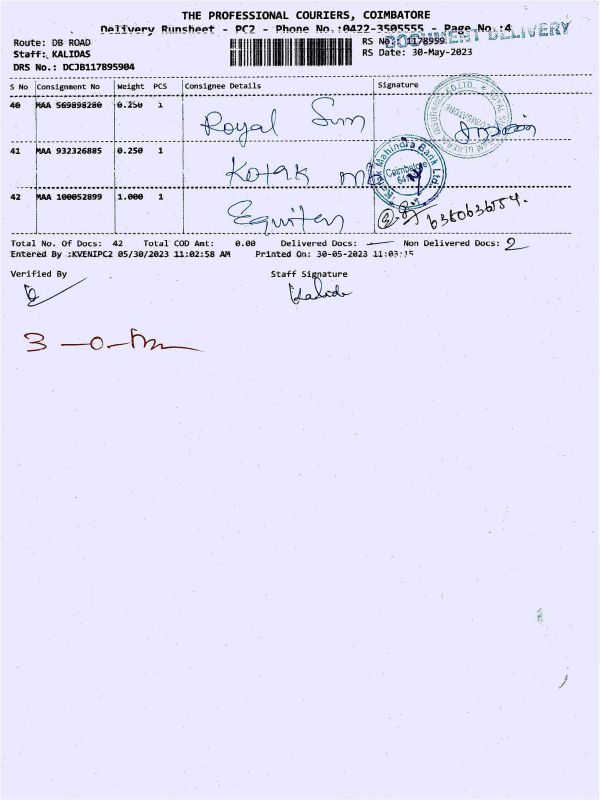 THE PROFESSIONAL COURIERS, COIMBATORE
Delivery Runsheet - PC2 - Phone No.:0422-3505555 - Page No.:4
DOCUMENT DELIVERY
Route: DB ROAD
RS No.: 1178959
Staff: KALIDAS
RS Date: 30-May-2023
DRS No.: DCJB117895904
S No Consignment No Weight PCS Consignee Details Signature
40 MAA 569898280 0.250 1 Royal Sun
41 MAA 932326885 0.250 1 Kotak
Kotak Mahindra Bank Ltd.
Coimbatore
42 MAA 100052899 1.000 1 Equitey
Total No. Of Docs: 42 Total COD Amt: 0.00 Delivered Docs: — Non Delivered Docs: 2
Entered By :KVENIPC2 05/30/2023 11:02:58 AM Printed On: 30-05-2023 11:03:15
Verified By Staff Signature
Kalidas
3 -0-